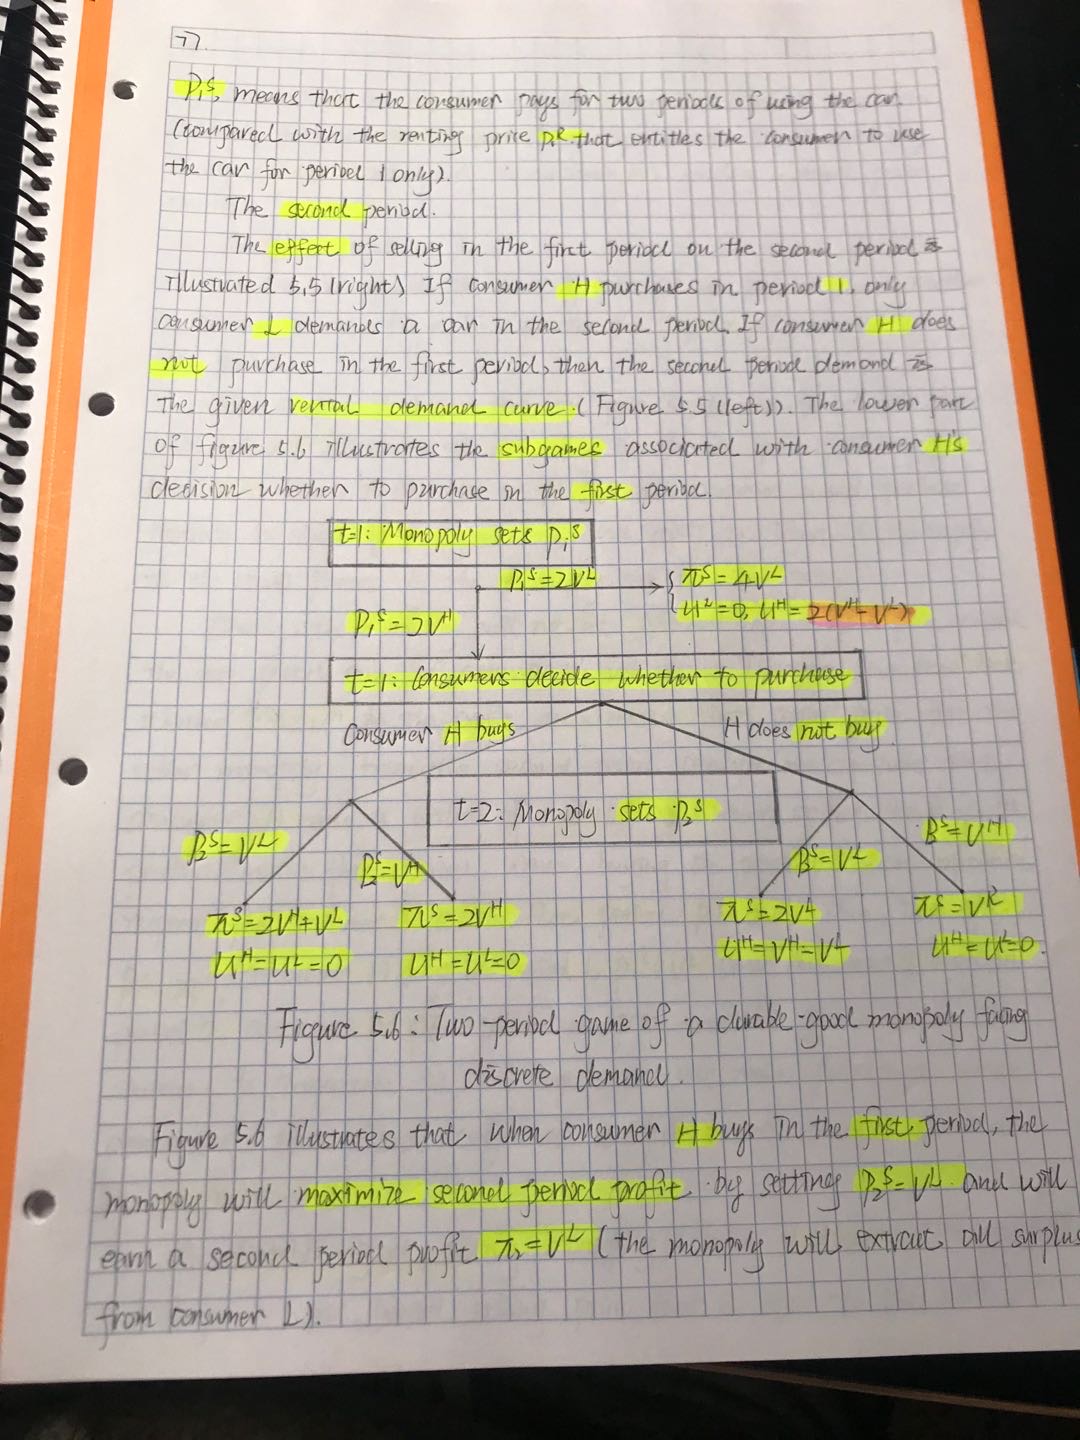 77.
P₁ˢ, means that the consumer pays for two periods of using the car
(compared with the renting price P₁ᴿ that entitles the consumer to use
the car for period 1 only).
The second period.
The effect of selling in the first period on the second period is
illustrated 5.5 (right) If consumer H purchases in period 1, only
consumer L demands a car in the second period. If consumer H does
not purchase in the first period, then the second period demand is
the given rental demand curve. (Figure 5.5 (left)). The lower part
of figure 5.6 illustrates the subgames associated with consumer H's
decision whether to purchase in the first period.
t=1: Monopoly sets P₁ˢ
P₁ˢ=2Vᴸ
πˢ=4Vᴸ
P₁ˢ=2Vᴴ
Uᴸ=0, Uᴴ=2(Vᴴ-Vᴸ)
t=1: Consumers decide whether to purchase
Consumer H buys
H does not buy
t=2: Monopoly sets P₂ˢ
P₂ˢ=Vᴸ
P₂ˢ=Vᴴ
P₂ˢ=Vᴸ
P₂ˢ=Uᴴ
πˢ=2Vᴴ+Vᴸ
πˢ=2Vᴴ
πˢ=2Vᴸ
Uᴴ=Uᴸ=0
Uᴴ=Uᴸ=0
Uᴴ=Vᴴ=Vᴸ
Uᴴ=Uᴸ=0.
Figure 5.6: Two-period game of a durable-good monopoly facing
discrete demand.
Figure 5.6 illustrates that when consumer H buys in the first period, the
monopoly will maximize second period profit by setting P₂ˢ=Vᴸ and will
earn a second period profit π₂=Vᴸ (the monopoly will extract all surplus
from consumer L).